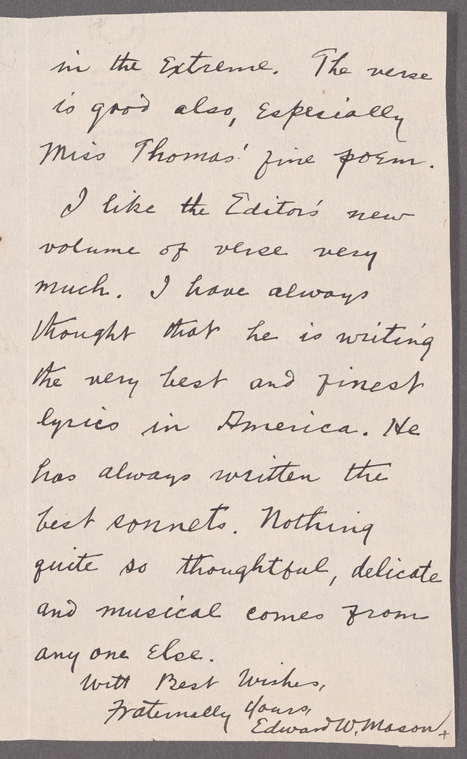 in the Extreme. The verse
is good also, Especially
Miss Thomas' fine poem.
I like the Editor's new
volume of verse very
much. I have always
thought that he is writing
the very best and finest
lyrics in America. He
has always written the
best sonnets. Nothing
quite so thoughtful, delicate
and musical comes from
any one Else.
With Best Wishes,
Fraternally Yours,
Edward W. Mason